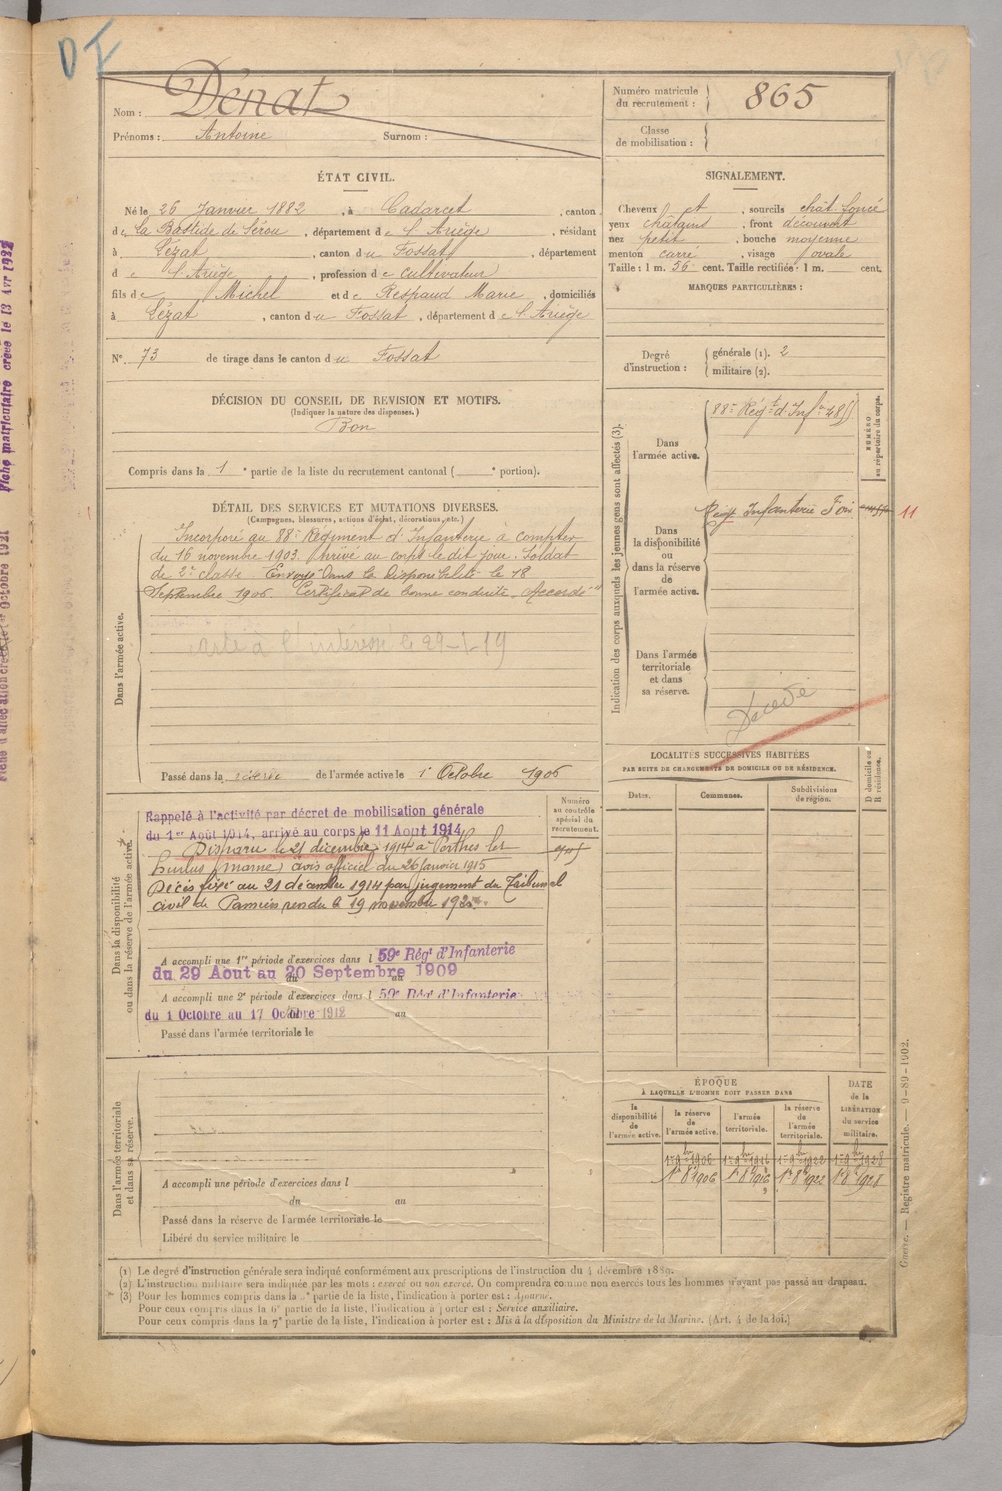 DF
Nom : Dénat
Prénoms : Antoine Surnom :
Numéro matricule du recrutement : 865
Classe de mobilisation :
ÉTAT CIVIL.
Né le 26 Janvier 1882, à Cadarcet, canton
de La Bastide de Sérou, département de l'Ariège, résidant
à Lézat, canton du Fossat, département
de l'Ariège, profession de cultivateur
fils de Michel et de Respaud Marie, domiciliés
à Lézat, canton du Fossat, département de l'Ariège
N° 73 de tirage dans le canton du Fossat
SIGNALEMENT.
Cheveux et, sourcils chât. foncé
yeux châtains, front découvert
nez petit, bouche moyenne
menton carré, visage ovale
Taille : 1 m. 56 cent. Taille rectifiée : 1 m. cent.
MARQUES PARTICULIÈRES :
Degré d'instruction : générale (1). 2
militaire (2).
DÉCISION DU CONSEIL DE REVISION ET MOTIFS.
(Indiquer la nature des dispenses.)
Bon
Compris dans la 1e partie de la liste du recrutement cantonal ( e portion).
DÉTAIL DES SERVICES ET MUTATIONS DIVERSES.
(Campagnes, blessures, actions d'éclat, décorations, etc.)
Dans l'armée active.
Incorporé au 88e Régiment d'Infanterie à compter
du 16 novembre 1903. Arrivé au corps le dit jour. Soldat
de 2e classe. Envoyé dans la Disponibilité le 18
Septembre 1906. Certificat de bonne conduite "Accordé"
à l'intérssé le 29-1-19
Passé dans la réserve de l'armée active le 1er Octobre 1906
Indication des corps auxquels les jeunes gens sont affectés (3).
NUMÉRO au répertoire du corps.
Dans l'armée active.
88e Régt d'Infie
Dans la disponibilité ou dans la réserve de l'armée active.
Régt Infanterie Foix
11
Dans l'armée territoriale et dans sa réserve.
Décédé
LOCALITÉS SUCCESSIVES HABITÉES
PAR SUITE DE CHANGEMENTS DE DOMICILE OU DE RÉSIDENCE.
D domicile ou R résidence.
Dates. Communes. Subdivisions de région.
Dans la disponibilité ou dans la réserve de l'armée active.
Numéro au contrôle spécial du recrutement.
Rappelé à l'activité par décret de mobilisation générale
du 1er Août 1914, arrivé au corps le 11 Août 1914
Disparu le 21 décembre 1914 à Perthes les
Hurlus (Marne) avis officiel du 26 Janvier 1915
Décès fixé au 21 décembre 1914 par jugement du Tribunal
civil de Pamiers rendu le 19 novembre
A accompli une 1re période d'exercices dans l 59e Régt d'Infanterie
du 29 Aout au 20 Septembre 1909
A accompli une 2e période d'exercices dans l 59e Régt d'Infanterie
du 1 Octobre au 17 Octobre 1912
Passé dans l'armée territoriale le
Dans l'armée territoriale et dans sa réserve.
A accompli une période d'exercices dans l
du au
Passé dans la réserve de l'armée territoriale le
Libéré du service militaire le
ÉPOQUE
À LAQUELLE L'HOMME DOIT PASSER DANS
DATE de la LIBÉRATION du service militaire.
la disponibilité de l'armée active. la réserve de l'armée active. l'armée territoriale. la réserve de l'armée territoriale.
1er 9bre 1906 1er 9bre 1916 1er 9bre 1922 1er 9bre 1928
1er 8bre 1906 1er 8bre 1916 1er 8bre 1922 1er 8bre 1928
(1) Le degré d'instruction générale sera indiqué conformément aux prescriptions de l'instruction du 4 décembre 1889.
(2) L'instruction militaire sera indiquée par les mots : exercé ou non exercé. On comprendra comme non exercés tous les hommes n'ayant pas passé au drapeau.
(3) Pour les hommes compris dans la partie de la liste, l'indication à porter est : Ajourné.
Pour ceux compris dans la 6e partie de la liste, l'indication à porter est : Service auxiliaire.
Pour ceux compris dans la 7e partie de la liste, l'indication à porter est : Mis à la disposition du Ministre de la Marine. (Art. 4 de la loi.)
Registre matricule. — 9-89-1902.
Fiche matriculaire créée le 13 Avr 1922
Octobre 1921